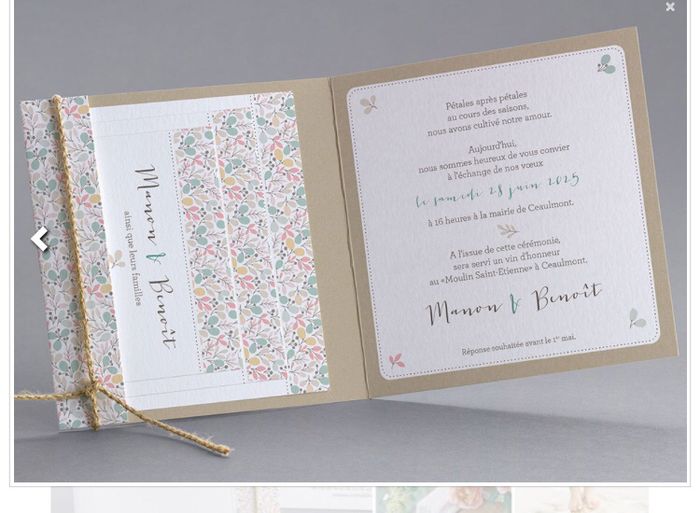 Manon & Benoît
ainsi que leurs familles
Pétales après pétales
au cours des saisons,
nous avons cultivé notre amour.
Aujourd'hui,
nous sommes heureux de vous convier
à l'échange de nos vœux
le samedi 28 juin 2025
à 16 heures à la mairie de Ceaulmont.
A l'issue de cette cérémonie,
sera servi un vin d'honneur
au «Moulin Saint-Etienne» à Ceaulmont.
Manon & Benoît
Réponse souhaitée avant le 1er mai.